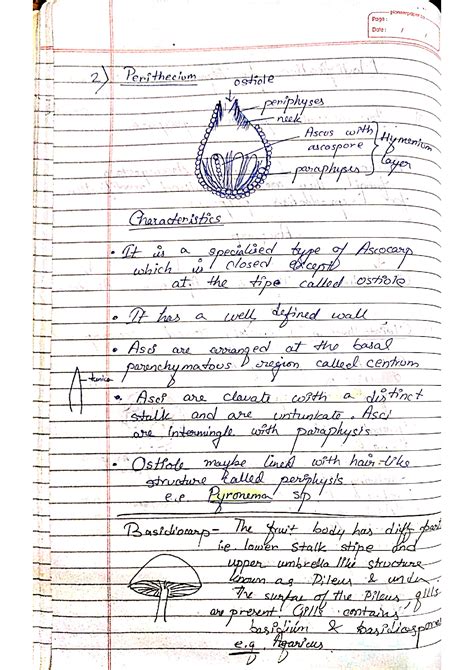 Page :
Date : / /
2) Perithecium
ostiole
periphyses
neck
Ascus with
ascospore
Hymenium
layer
paraphyses
Characteristics
• It is a specialised type of Ascocarp
which is closed except
at the tipe called ostiole
• It has a well defined wall
• Asci are arranged at the basal
parenchymatous region called centrum
tunica
• Asci are clavate with a distinct
stalk and are untunkate. Asci
are intermingle with paraphysis.
• Ostiole maybe lined with hair-like
structure called periphysis
e.e Pyronema sp
Basidiocarp - The fruit body has diff part
i.e. lower stalk stipe and
upper umbrella like structure
known as Pileus & under
The surface of the Pileus gills
are present Gills contains
basidium & basidiospores
e.g Agaricus